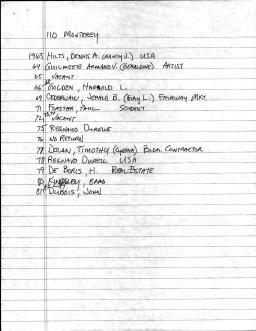 110 MONTEREY
1963 HILTS, DENNIS A. (KATHY J.) USA
64 GUILMETTE ARMAND V. (GERALDINE) ARTIST
65 VACANT
66 MOLDEN, HAROLD L.
69 CEDERWALL, JERALD B. (GAY L.) FAIRWAY MKT.
71 FORSTER, PAUL STUDENT
72 VACANT
75 REGNAUD DURELLE
76 NO RETURN
77 DOLAN, TIMOTHY (CYNTHIA) BLDG. CONTRACTOR
78 REGNAUD DURELL USA
79 DE BORIS, H. REAL ESTATE
80 KINGSLEY, BRAD
81 DUBOIS, JOHN